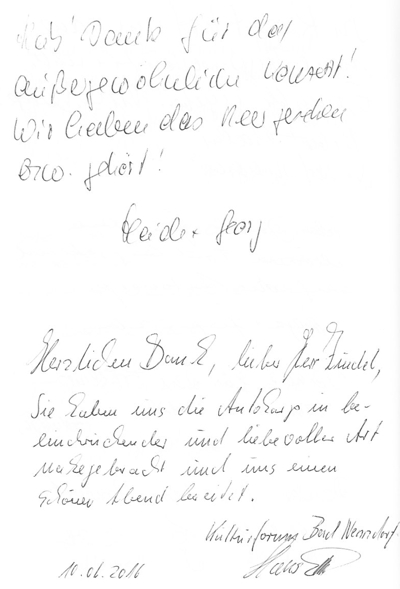 Dank für das
außergewöhnliche Konzert!
Wir haben das Meer gesehen
bzw. gehört!
Heide + Georg
Herzlichen Dank, lieber Herr Zindel,
Sie haben uns die Autoharp in be-
eindruckender und liebevoller Art
nahegebracht und uns einen
schönen Abend bereitet.
Kulturforum Bad
10.06.2016